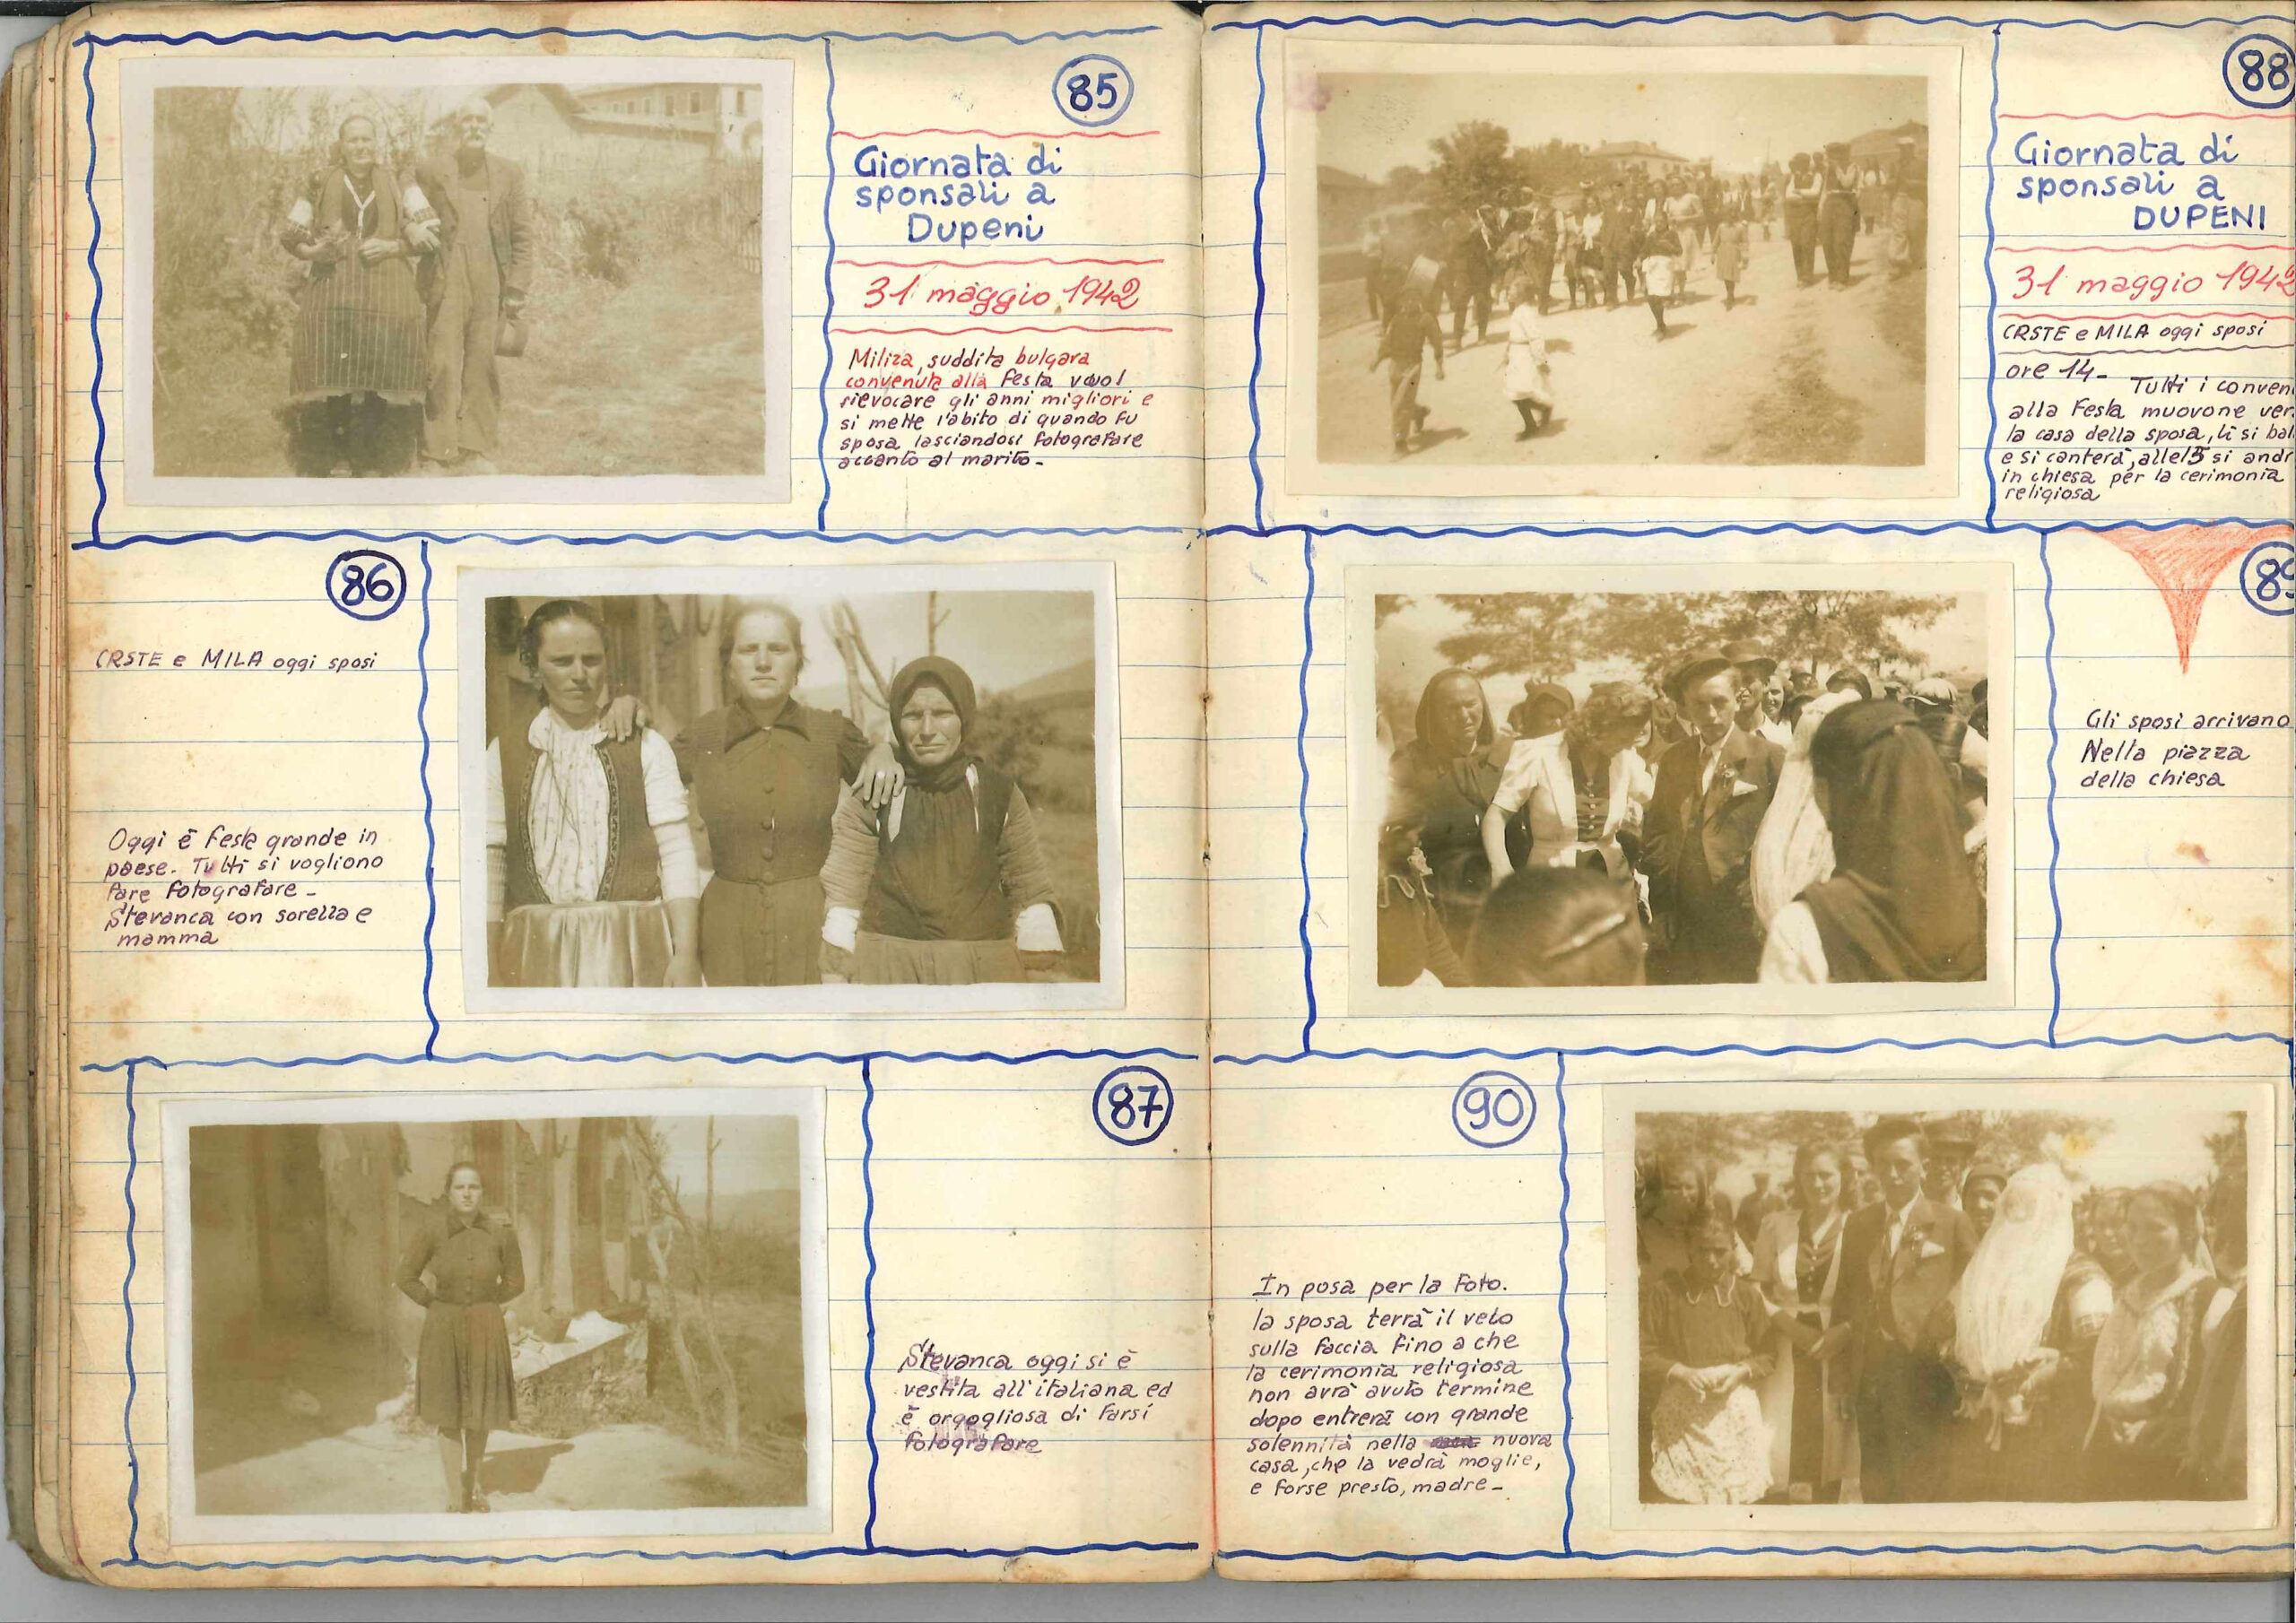 85
Giornata di
sponsali a
Dupeni
31 maggio 1942
Miliza, suddita bulgara
convenuta alla festa vuol
rievocare gli anni migliori e
si mette l'abito di quando fu
sposa, lasciandosi fotografare
accanto al marito-
86
CRSTE e MILA oggi sposi
Oggi è festa grande in
paese. Tutti si vogliono
fare fotografare -
Stevanca con sorella e
mamma
87
Stevanca oggi si è
vestita all'italiana ed
è orgogliosa di farsi
fotografare
88
Giornata di
sponsali a
DUPENI
31 maggio 1942
CRSTE e MILA oggi sposi
ore 14-
Tutti i conven
alla festa muovone ver
la casa della sposa, lì si bal
e si canterà, alle 15 si andr
in chiesa per la cerimonia
religiosa
89
Gli sposi arrivano
Nella piazza
della chiesa
90
In posa per la foto.
la sposa terrà il velo
sulla faccia fino a che
la cerimonia religiosa
non avrà avuto termine
dopo entrerà con grande
solennità nella nuova
casa, che la vedrà moglie,
e forse presto, madre-